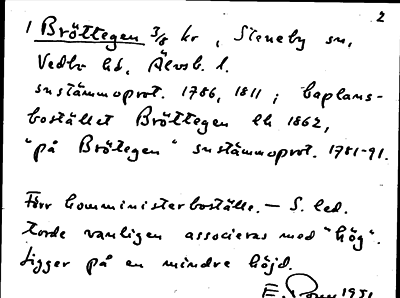 2
1 Bröttegen 3/8 kr, Steneby sn,
Vedbo hd, Älvsb. l.
snstämmoprot. 1786, 1811; Caplans-
bostället Bröttegen lh 1862,
"på Brötegen" snstämmoprot. 1781-91.
Förr komministerboställe. — S. led.
torde vanligen associeras med "hög".
Ligger på en mindre höjd.
E. 1951